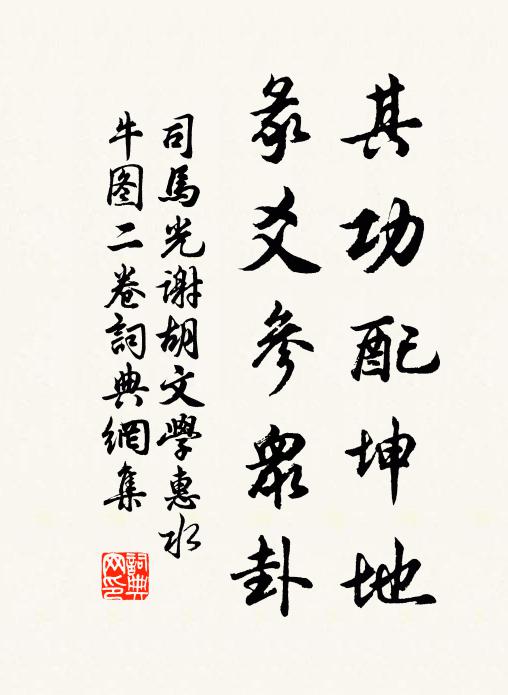 其功配坤地
彖爻參眾卦
司馬光謝胡文學惠水
牛图二卷詞典網集
詞典
网印